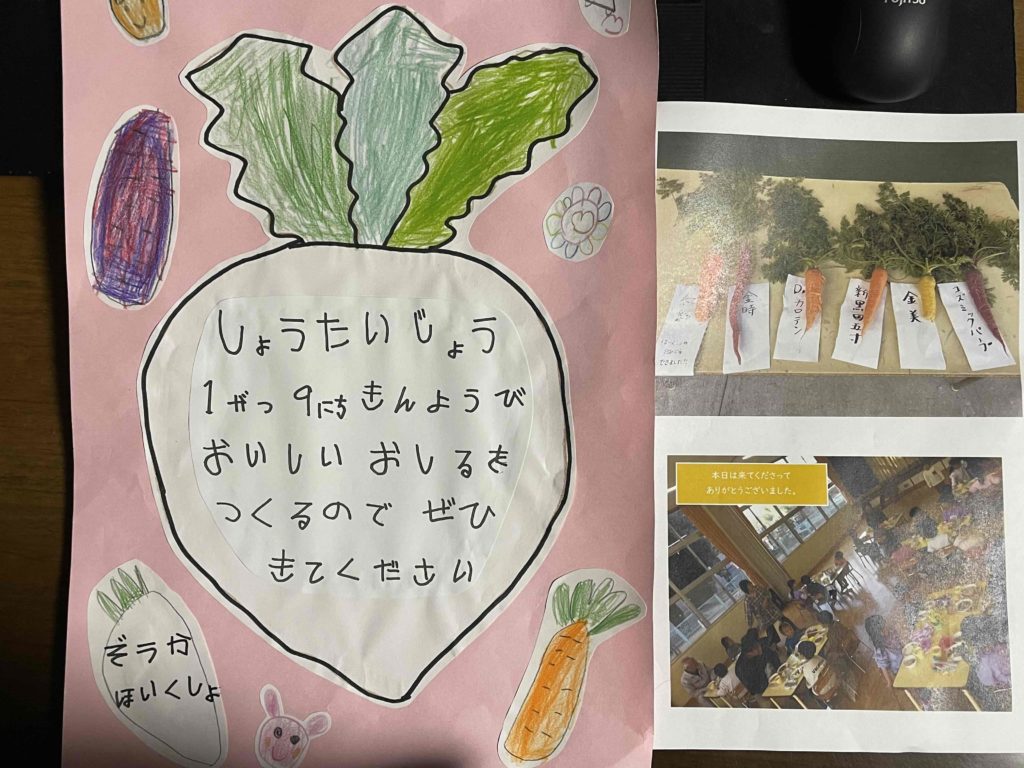 しょうたいじょう
1がつ 9にち きんようび
おいしい おしるを
つくるので ぜひ
きてください
ぞうか
ほいくしょ
FUJITSU
金時
Dr.カロテン
新黒田五寸
金美
コズミックパープル
本日は来てくださって
ありがとうございました。